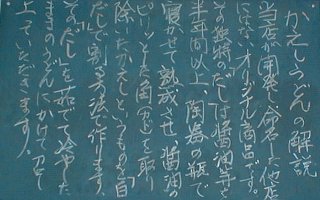 かえしうどんの解説
当店が開発し命名した他店
にはないオリジナル商品です。
その独特のだしは醤油等を
半年間以上、陶器の瓶で
寝かせて熟成させ、醤油の
ピリッとした因(窓)を取り
除いたかえしというものを白
だしで割る方法で作ります。
そのだしを茹でて冷やした
ままのうどんにかけて召し
上っていただきます。